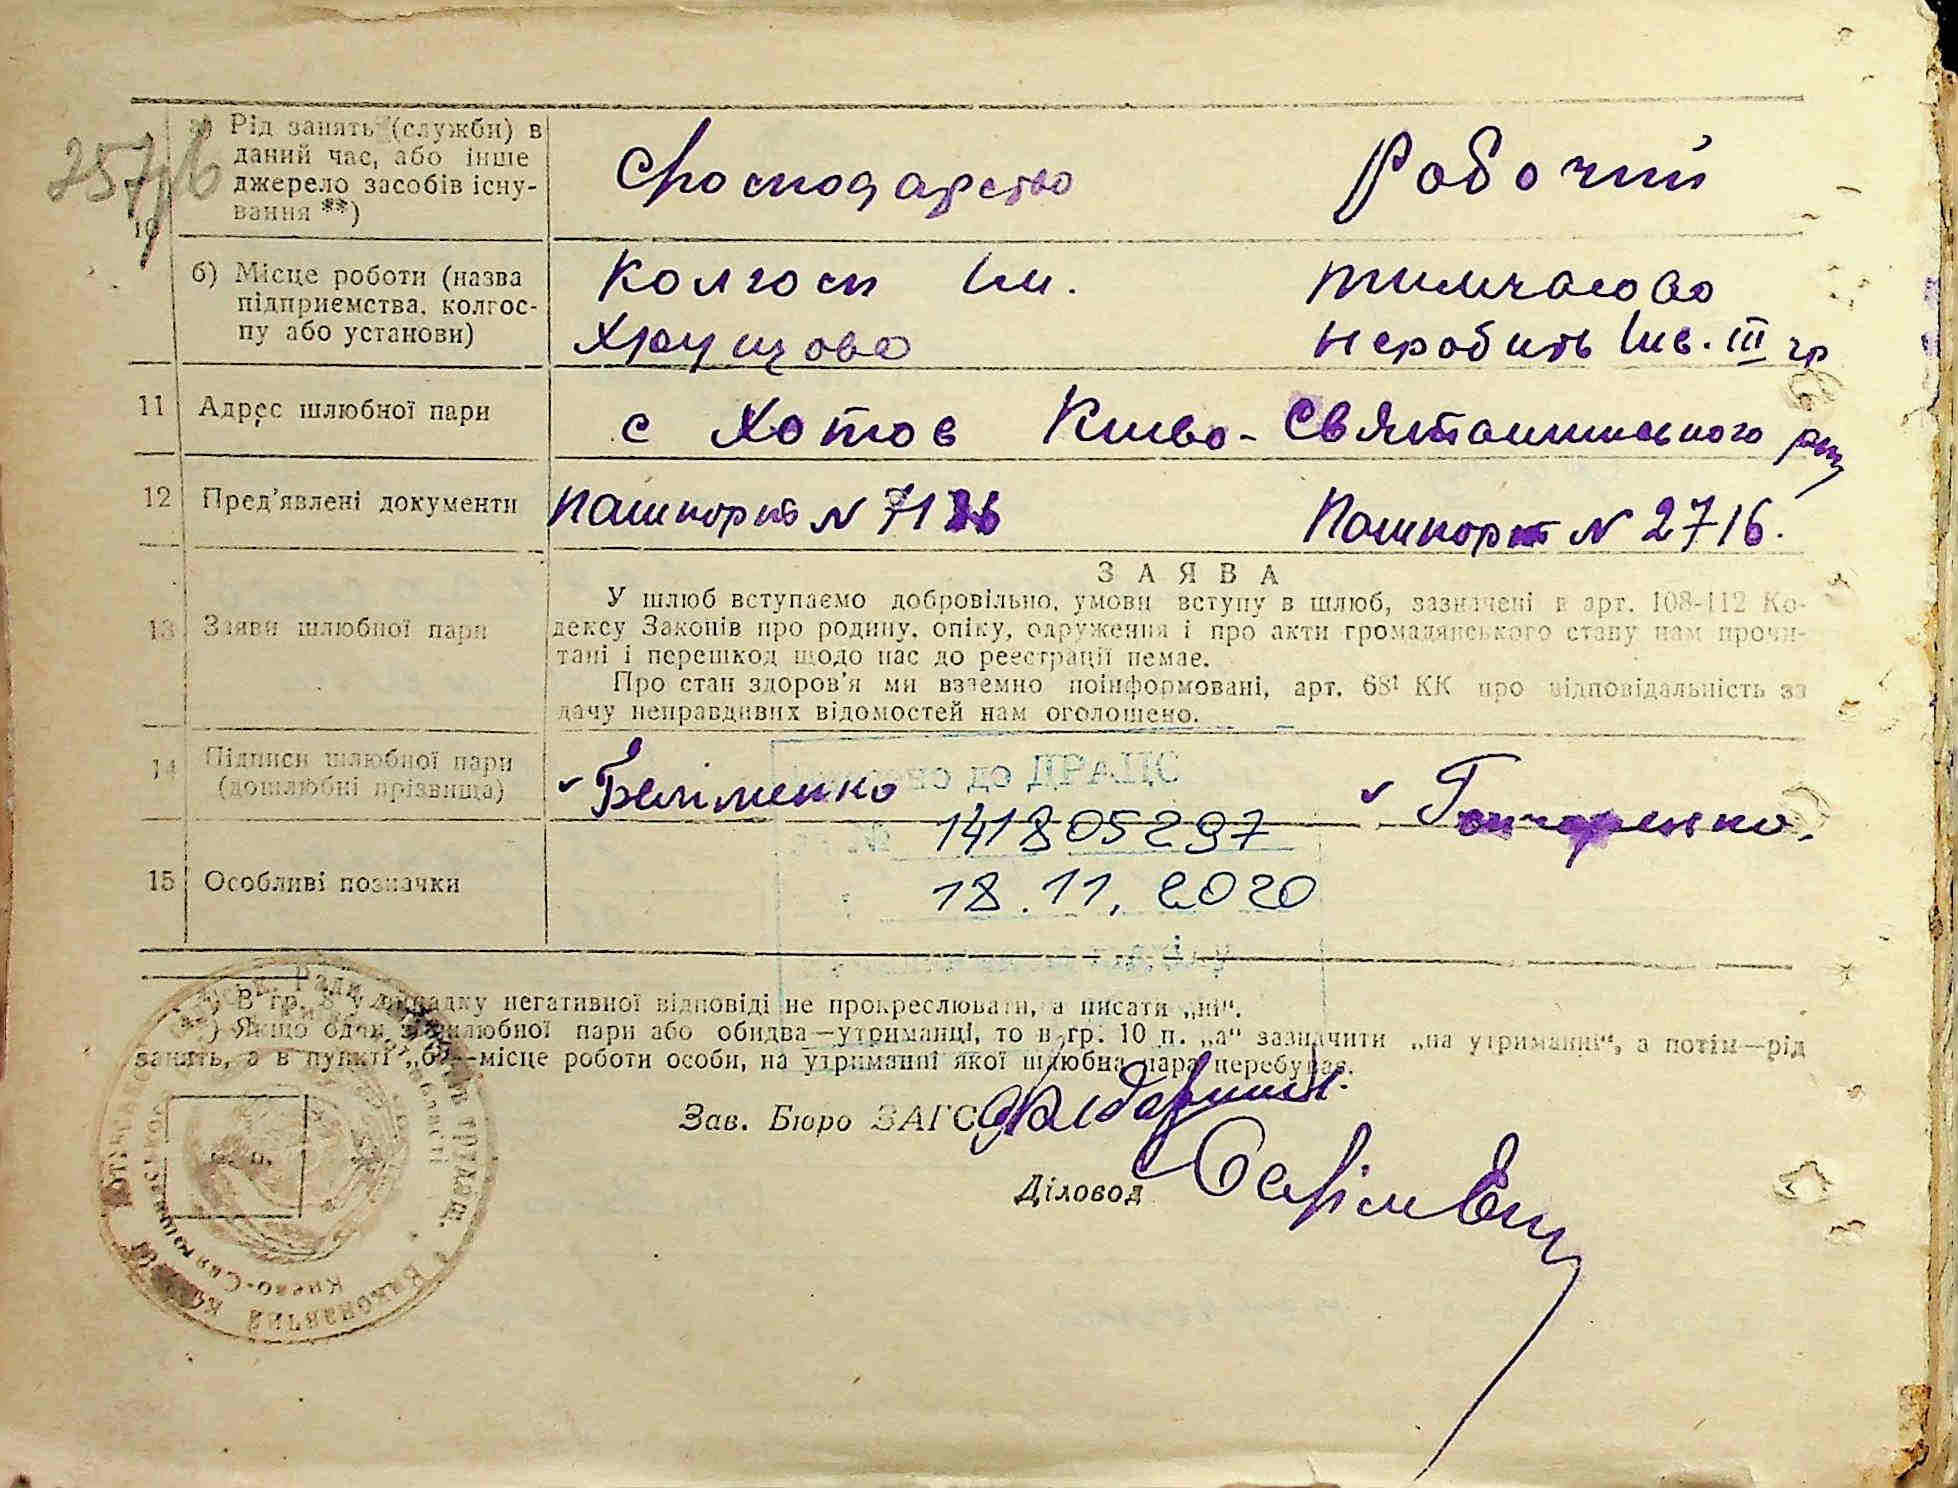 257/6
а) Рід занять (служби) в
даний час, або інше
джерело засобів існу-
вання **)
10
Господарство
Робочий
б) Місце роботи (назва
підприємства, колгос-
пу або установи)
Колгосп Ім.
Хрущова
тимчасово
неробить Інв. III гр
11 Адрес шлюбної пари
с Хотов Києво-Святошинського
12 Пред'явлені документи
Пашпорт N
Пашпорт N 2716.
13 Заяви шлюбної пари
ЗАЯВА
У шлюб вступаємо добровільно, умови вступу в шлюб, зазначені в арт. 108-112 Ко-
дексу Законів про родину, опіку, одруження і про акти громадянського стану нам прочи-
тані і перешкод щодо нас до реєстрації немає.
Про стан здоров'я ми взаємно поінформовані, арт. 68¹ КК про відповідальність за
дачу неправдивих відомостей нам оголошено.
14 Підписи шлюбної пари
(дошлюбні прізвища)
Гончаренко.
до ДРАЦС
№ 141805297
18.11.2020
15 Особливі позначки
*) В гр. 8 у випадку негативної відповіді не прокреслювати, а писати „ні“.
**) Якщо один з шлюбної пари або обидва—утриманці, то в гр. 10 п. „а“ зазначити „на утриманні“, а потім—рід
занять, а в пункті „б“—місце роботи особи, на утриманні якої шлюбна пара перебуває.
Зав. Бюро ЗАГС
Діловод
Виконавчий
Києво-Святошинського